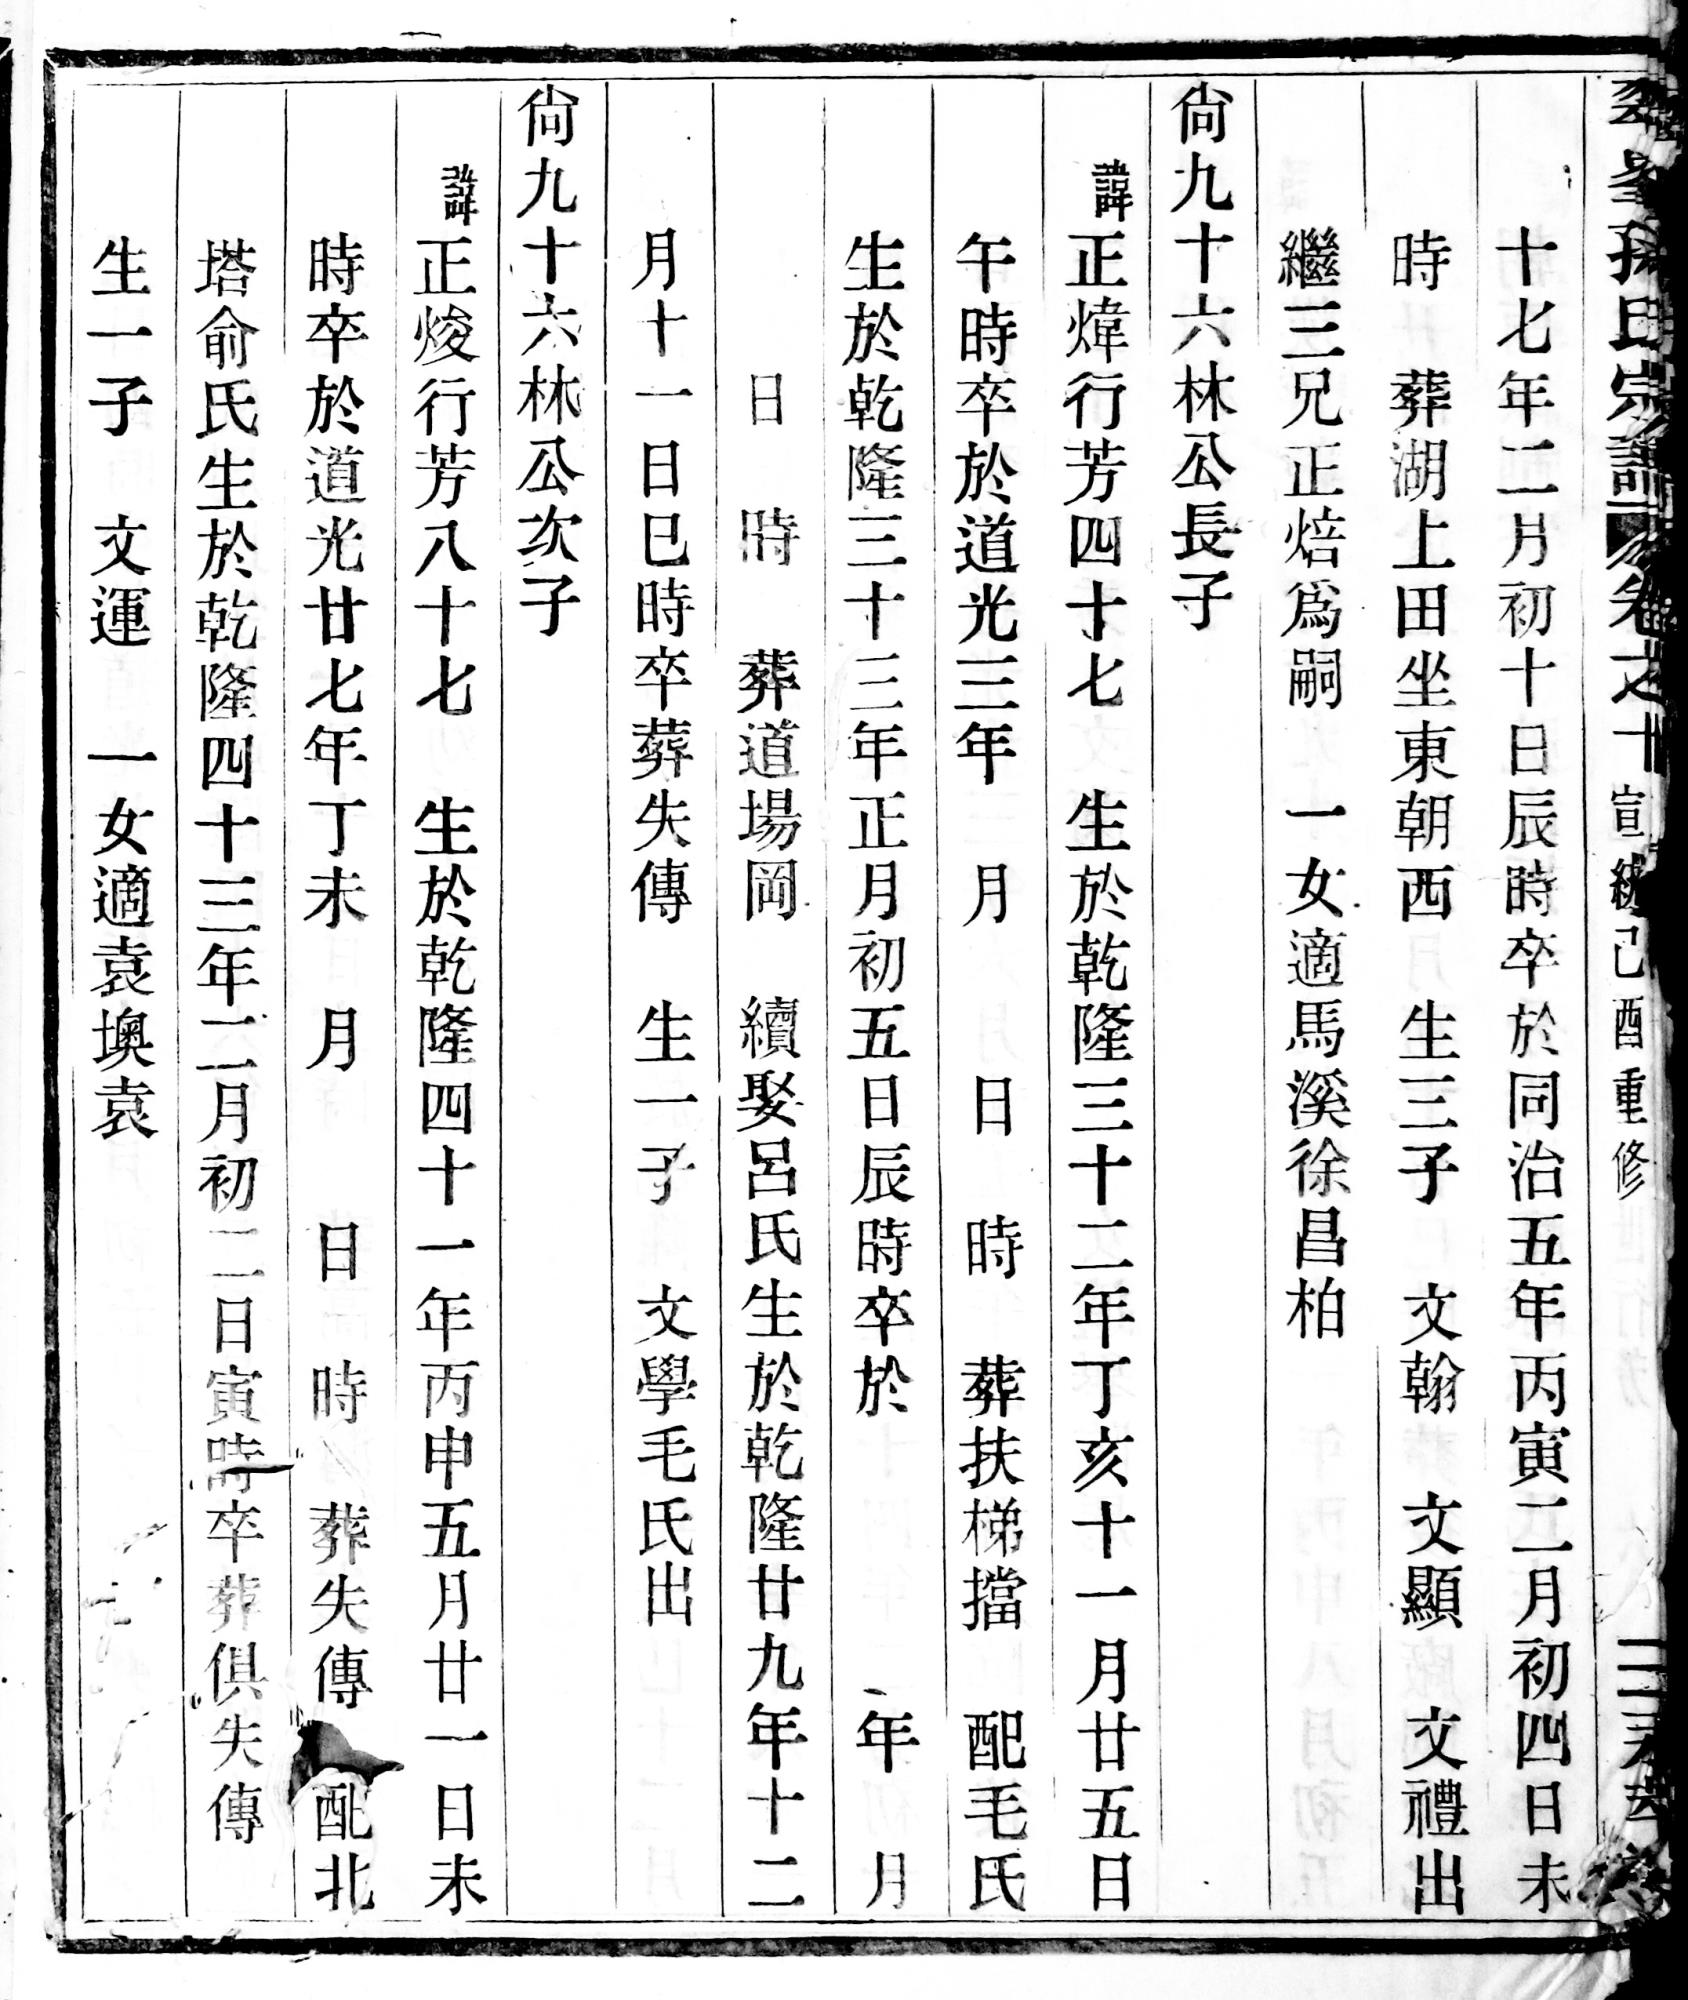 孫氏宗譜 卷之十 宣統己酉重修
十七年二月初十日辰時卒於同治五年丙寅二月初四日未
時 葬湖上田坐東朝西 生三子 文翰 文顯 文禮出
繼三兄正焙爲嗣 一女適馬溪徐昌柏
尙九十六林公長子
諱正煒行芳四十七 生於乾隆三十二年丁亥十一月廿五日
午時卒於道光三年 月 日 時 葬扶梯擋 配毛氏
生於乾隆三十三年正月初五日辰時卒於 年 月
日 時 葬道場岡 續娶呂氏生於乾隆廿九年十二
月十一日巳時卒葬失傳 生一子 文學毛氏出
尙九十六林公次子
諱正焌行芳八十七 生於乾隆四十一年丙申五月廿一日未
時卒於道光廿七年丁未 月 日 時 葬失傳 配北
塔俞氏生於乾隆四十三年二月初二日寅時卒葬俱失傳
生一子 文運 一女適袁墺袁